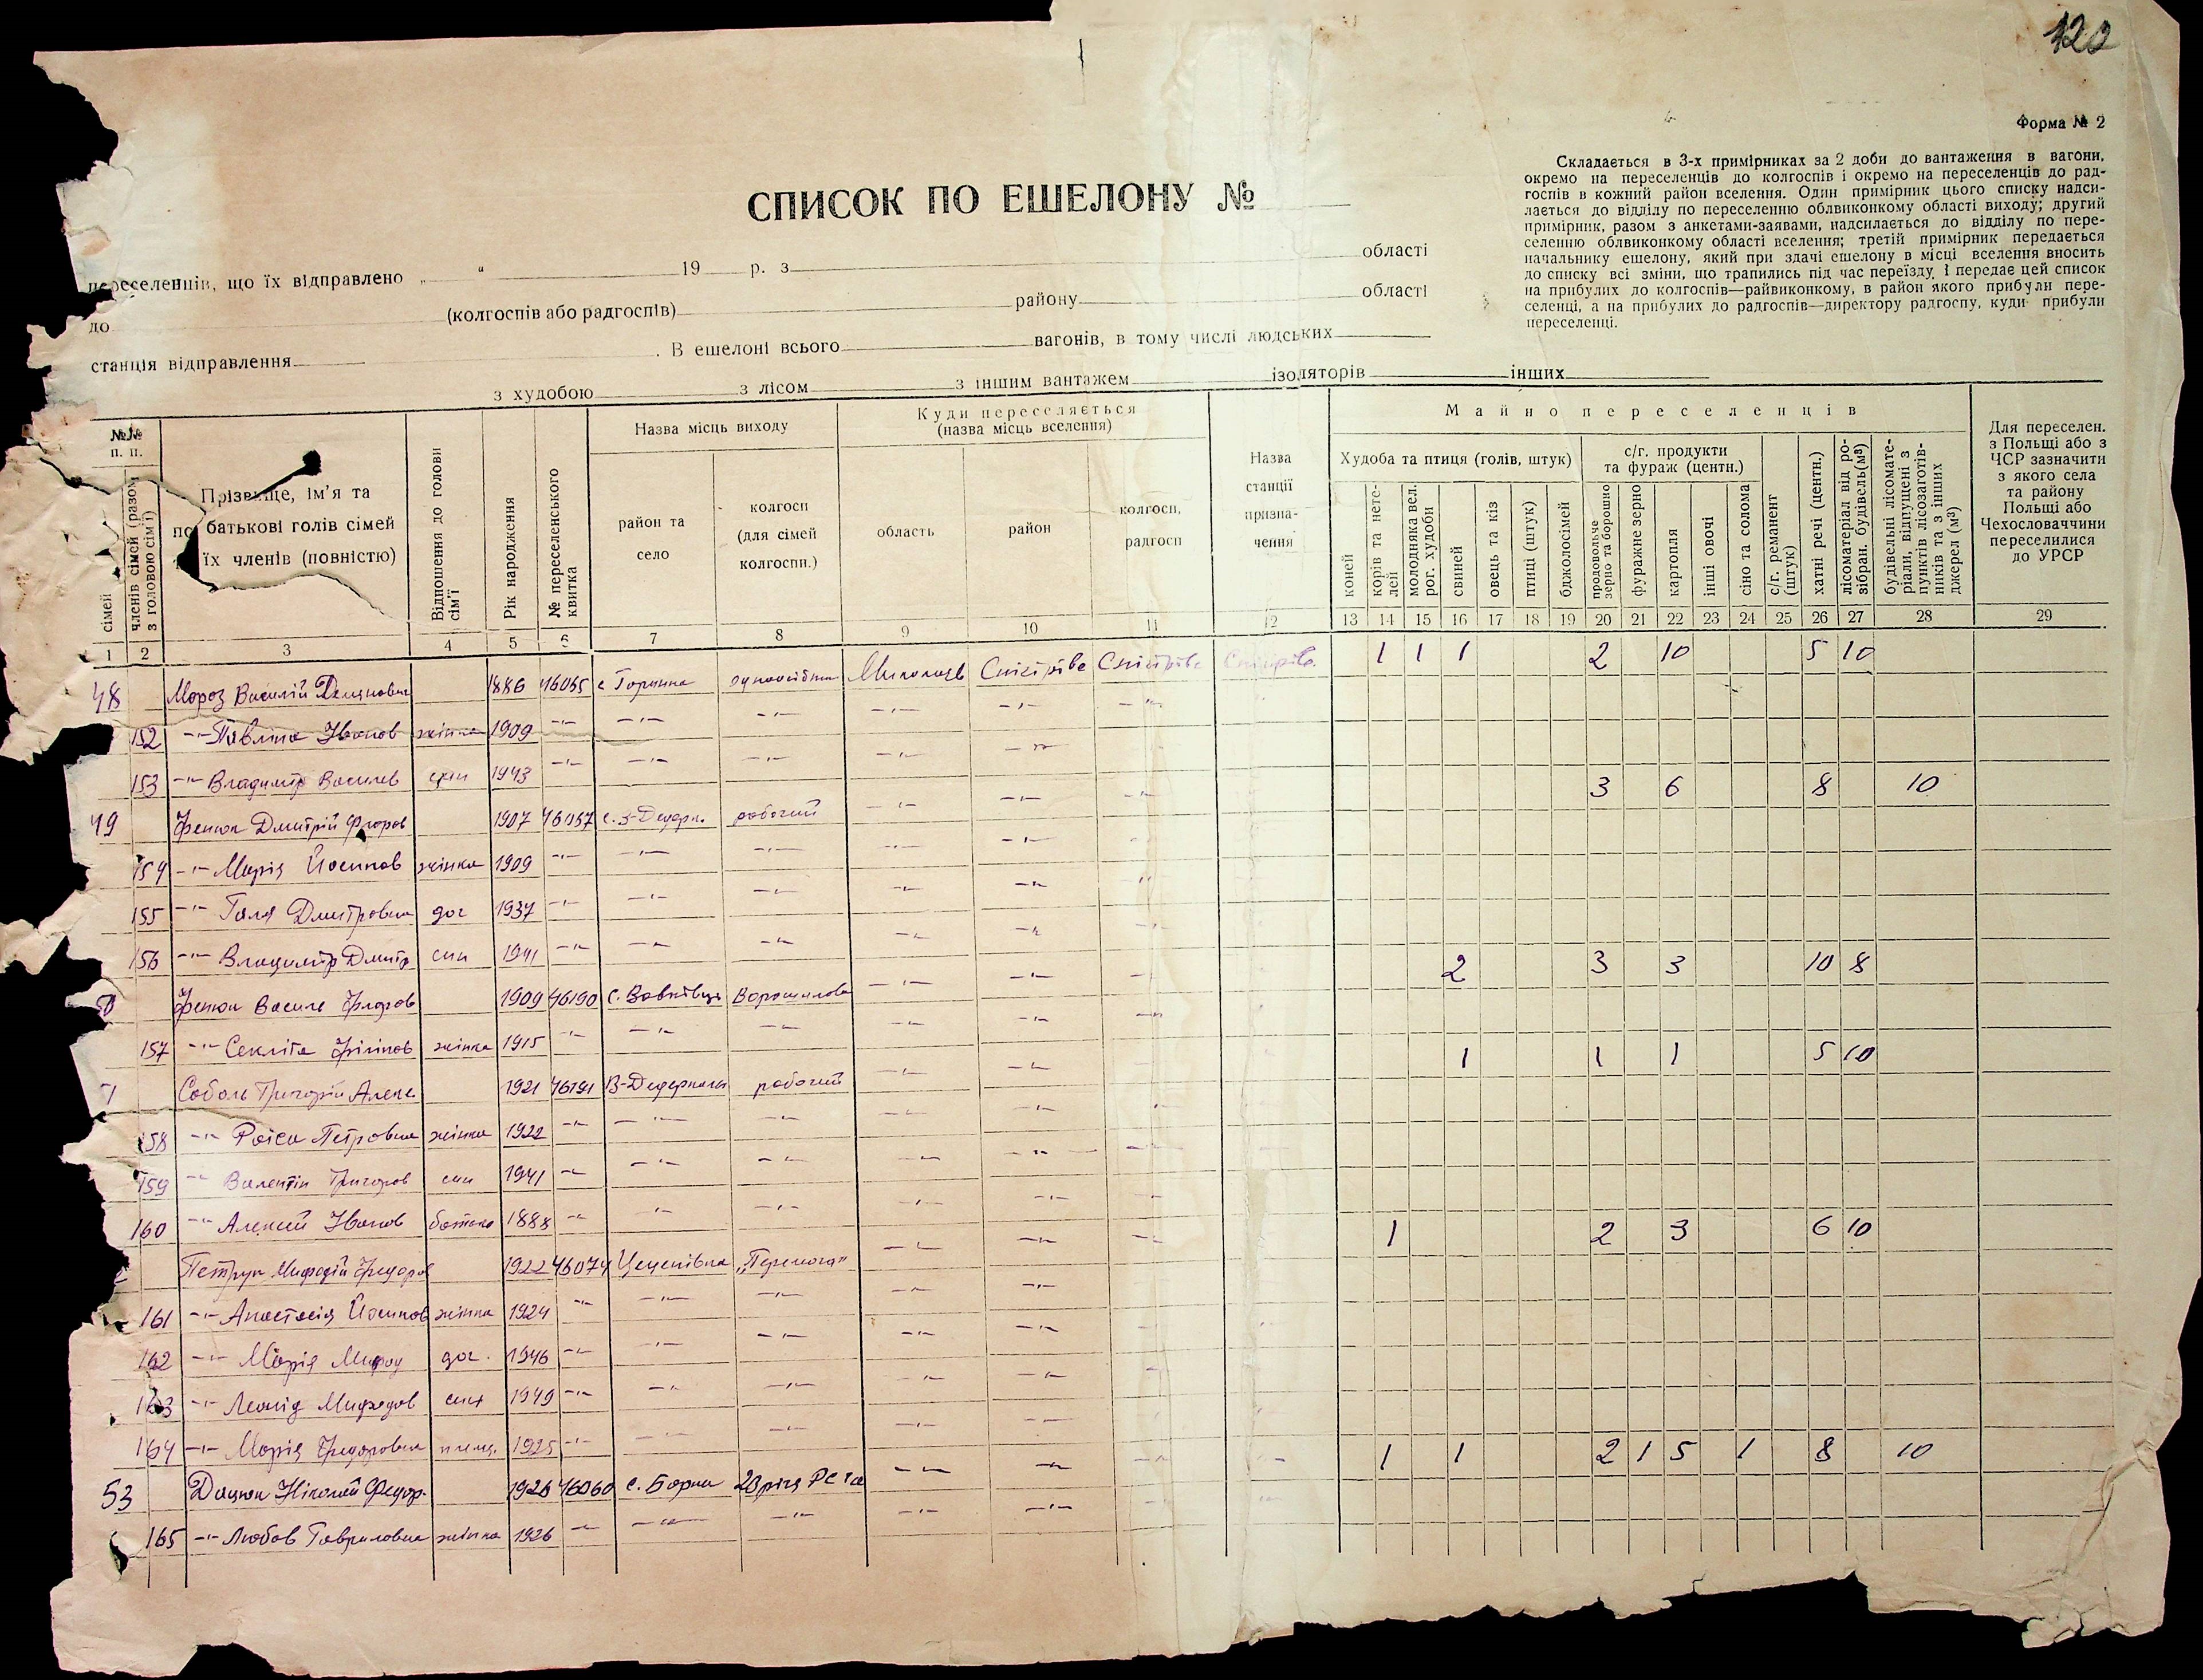 120
Форма № 2
Складається в 3-х примірниках за 2 доби до вантаження в вагони,
окремо на переселенців до колгоспів і окремо на переселенців до рад-
госпів в кожний район вселення. Один примірник цього списку надси-
лається до відділу по переселенню облвиконкому області виходу; другий
примірник, разом з анкетами-заявами, надсилається до відділу по пере-
селенню облвиконкому області вселення; третій примірник передається
начальнику ешелону, який при здачі ешелону в місці вселення вносить
до списку всі зміни, що трапились під час переїзду, і передає цей список
на прибулих до колгоспів—райвиконкому, в район якого прибули пере-
селенці, а на прибулих до радгоспів—директору радгоспу, куди прибули
переселенці.
СПИСОК ПО ЕШЕЛОНУ №
переселенців, що їх відправлено „ “ 19 р. з області
до (колгоспів або радгоспів) району області
станція відправлення . В ешелоні всього вагонів, в тому числі людських
з худобою з лісом з іншим вантажем ізоляторів інших
№№ п. п.
сімей
членів сімей (разом з головою сім'ї)
Прізвище, ім'я та
по батькові голів сімей
їх членів (повністю)
Відношення до голови сім'ї
Рік народження
№ переселенського квитка
Назва місць виходу
район та село
колгосп (для сімей колгоспн.)
Куди переселяється
(назва місць вселення)
область
район
колгосп, радгосп
Назва станції призна-чення
Майно переселенців
Худоба та птиця (голів, штук)
коней
корів та нете-лей
молодняка вел. рог. худоби
свиней
овець та кіз
птиці (штук)
бджолосімей
с/г. продукти та фураж (центн.)
продовольче зерно та борошно
фуражне зерно
картопля
інші овочі
сіно та солома
с/г. реманент (штук)
хатні речі (центн.)
лісоматеріал від ро-зібран. будівель(м³)
будівельні лісомате-ріали, відпущені з пунктів лісозаготів-ників та з інших джерел (м³)
Для переселен.
з Польщі або з
ЧСР зазначити
з якого села
та району
Польщі або
Чехословаччини
переселилися
до УРСР
1 2 3 4 5 6 7 8 9 10 11 12 13 14 15 16 17 18 19 20 21 22 23 24 25 26 27 28 29
48 Мороз Василій 1886 46035 с Горинка Миколаїв 1 1 1 2 10 5 10
152 -"- Павліна Іванов жінка 1909 -"- -"- -"- -"- -"- -"-
153 -"- Владимір Василев син 1943 -"- -"- -"- -"- -"-
49 Фенюк Дмитрій Фторов 1907 46037 с. В-Дедерк. робочий -"- -"- -"- 3 6 8 10
154 -"- Марія Йосипов жінка 1909 -"- -"- -"- -"- -"-
155 -"- Галя Дмитровна доч 1937 -"- -"- -"- -"- -"- -"-
156 -"- Владимір Дмитр син 1941 -"- -"- -"- -"- -"- -"-
50 Фенюк Василь Фторов 1909 46190 с. Вовківці Ворошилова -"- -"- -"- 2 3 3 10 8
157 -"- Секліта Філіпов жінка 1915 -"- -"- -"- -"- -"- -"-
Соболь Григорій Алекс. 1921 46191 В-Дедеркали робочий -"- -"- 1 1 1 5 10
158 -"- Раїса Петровна жінка 1922 -"- -"- -"- -"-
159 -"- Валентін Григоров син 1941 -"- -"- -"- -"- -"- -"-
160 -"- Алексей Іванов батько 1888 -"- -"- -"- -"- -"- -"-
Петрук Мефодій Федоров 1922 46074 Цеценівка „Перемога" -"- -"- -"- 1 2 3 6 10
161 -"- Анастасія Йосипов жінка 1924 -"- -"- -"- -"- -"-
162 -"- Марія Мифод доч. 1946 -"- -"- -"- -"- -"-
163 -"- Леонід Мифодов син 1949 -"- -"- -"- -"- -"- -"-
164 -"- Марія Федоровна 1925 -"- -"- -"- -"- -"-
53 Дацюк Ніколай Федор. 1926 46060 с. Борки -"- -"- -"- 1 1 2 1 5 1 8 10
165 -"- Любов Гавриловна жінка 1926 -"- -"- -"- -"- -"- -"-